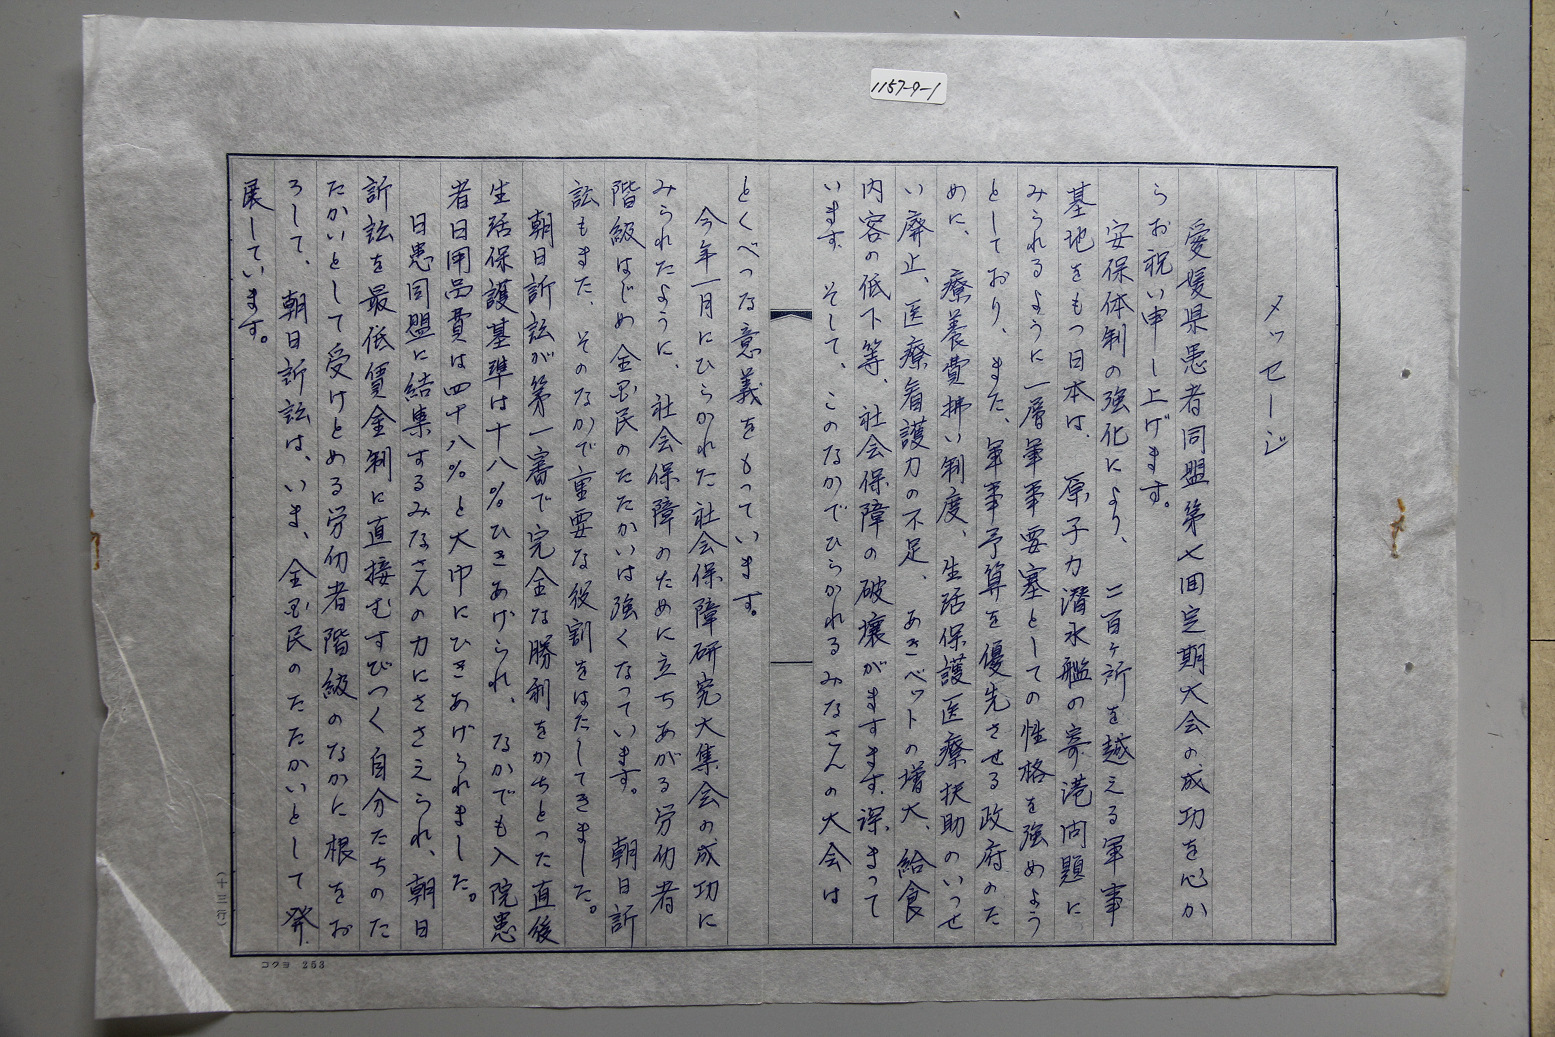 1157-9-1
メッセージ
愛媛県患者同盟第七回定期大会の成功を心か
らお祝い申し上げます。
安保体制の強化により、二百ヶ所を越える軍事
基地をもつ日本は、原子力潜水艦の寄港問題に
みられるように一層軍事要塞としての性格を強めよう
としており、また、軍事予算を優先させる政府のた
めに、療養費払い制度、生活保護医療扶助のいっせ
い廃止、医療看護力の不足、あきベットの増大、給食
内容の低下等、社会保障の破壊がますます深まって
います。そして、このなかでひらかれるみなさんの大会は
とくべつな意義をもっています。
今年一月にひらかれた社会保障研究大集会の成功に
みられたように、社会保障のために立ちあがる労仂者
階級はじめ全国民のたたかいは強くなっています。朝日訴
訟もまた、そのなかで重要な役割をはたしてきました。
朝日訴訟が第一審で完全な勝利をかちとった直後
生活保護基準は十八％ひきあげられ、なかでも入院患
者日用品費は四十八％と大巾にひきあげられました。
日患同盟に結集するみなさんの力にささえられ、朝日
訴訟を最低賃金制に直接むすびつく自分たちのた
たかいとして受けとめる労仂者階級のなかに根をお
ろして、朝日訴訟は、いま、全国民のたたかいとして発
展しています。
（十三行）
コクヨ 253